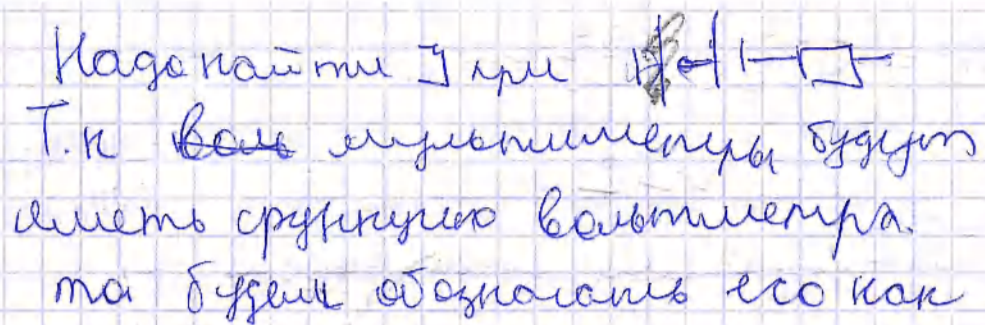 Надо найти J при
Т.к мультиметры будут
иметь функцию вольтметра.
то будем обозначать его как